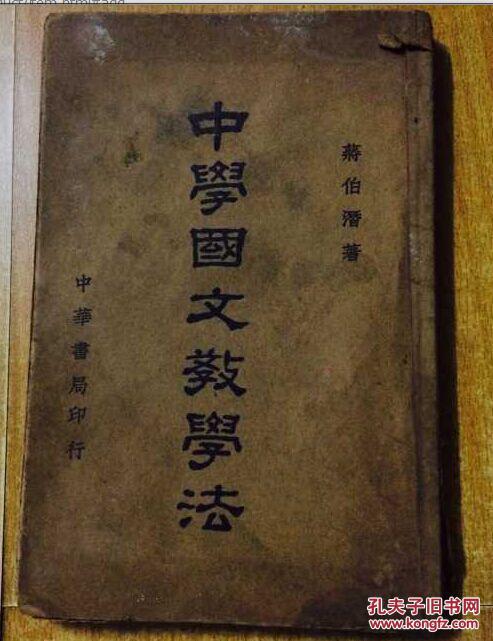 蔣伯潛著
中學國文敎學法
中華書局印行
孔夫子旧书网
www.kongfz.com